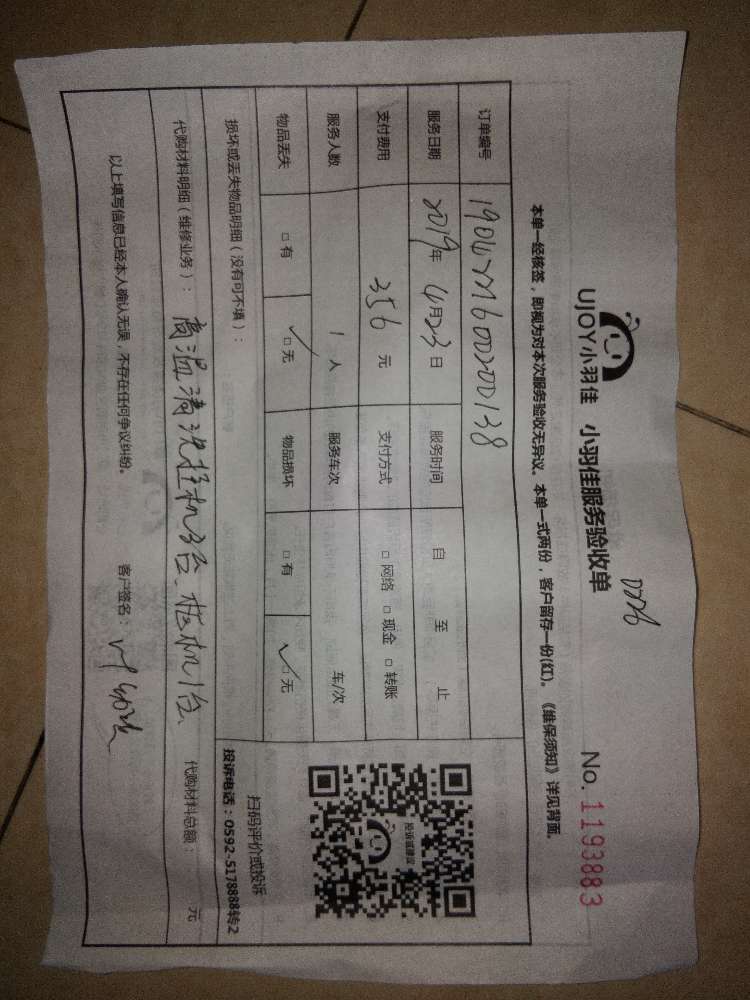 UJOY小羽佳 小羽佳服务验收单 No. 1193883
本单一经核签，即视为对本次服务验收无异议。本单一式两份，客户留存一份(红)。《维保须知》详见背面。
订单编号
服务日期 2019年 4月23日 服务时间 自 至 止
支付费用 356 元 支付方式 □ 网络 □ 现金 □ 转账
服务人数 1 人 服务车次 车/次
物品丢失 □ 有 □ 无 物品损坏 □ 有 □ 无
投诉或建议
扫码评价或投诉
投诉电话：0592-5178888转2
损坏或丢失物品明细（没有可不填）：
代购材料明细（维修业务）：高温清洗挂机3台、柜机1台 代购材料总额： 元
以上填写信息已经本人确认无误，不存在任何争议纠纷。 客户签名：